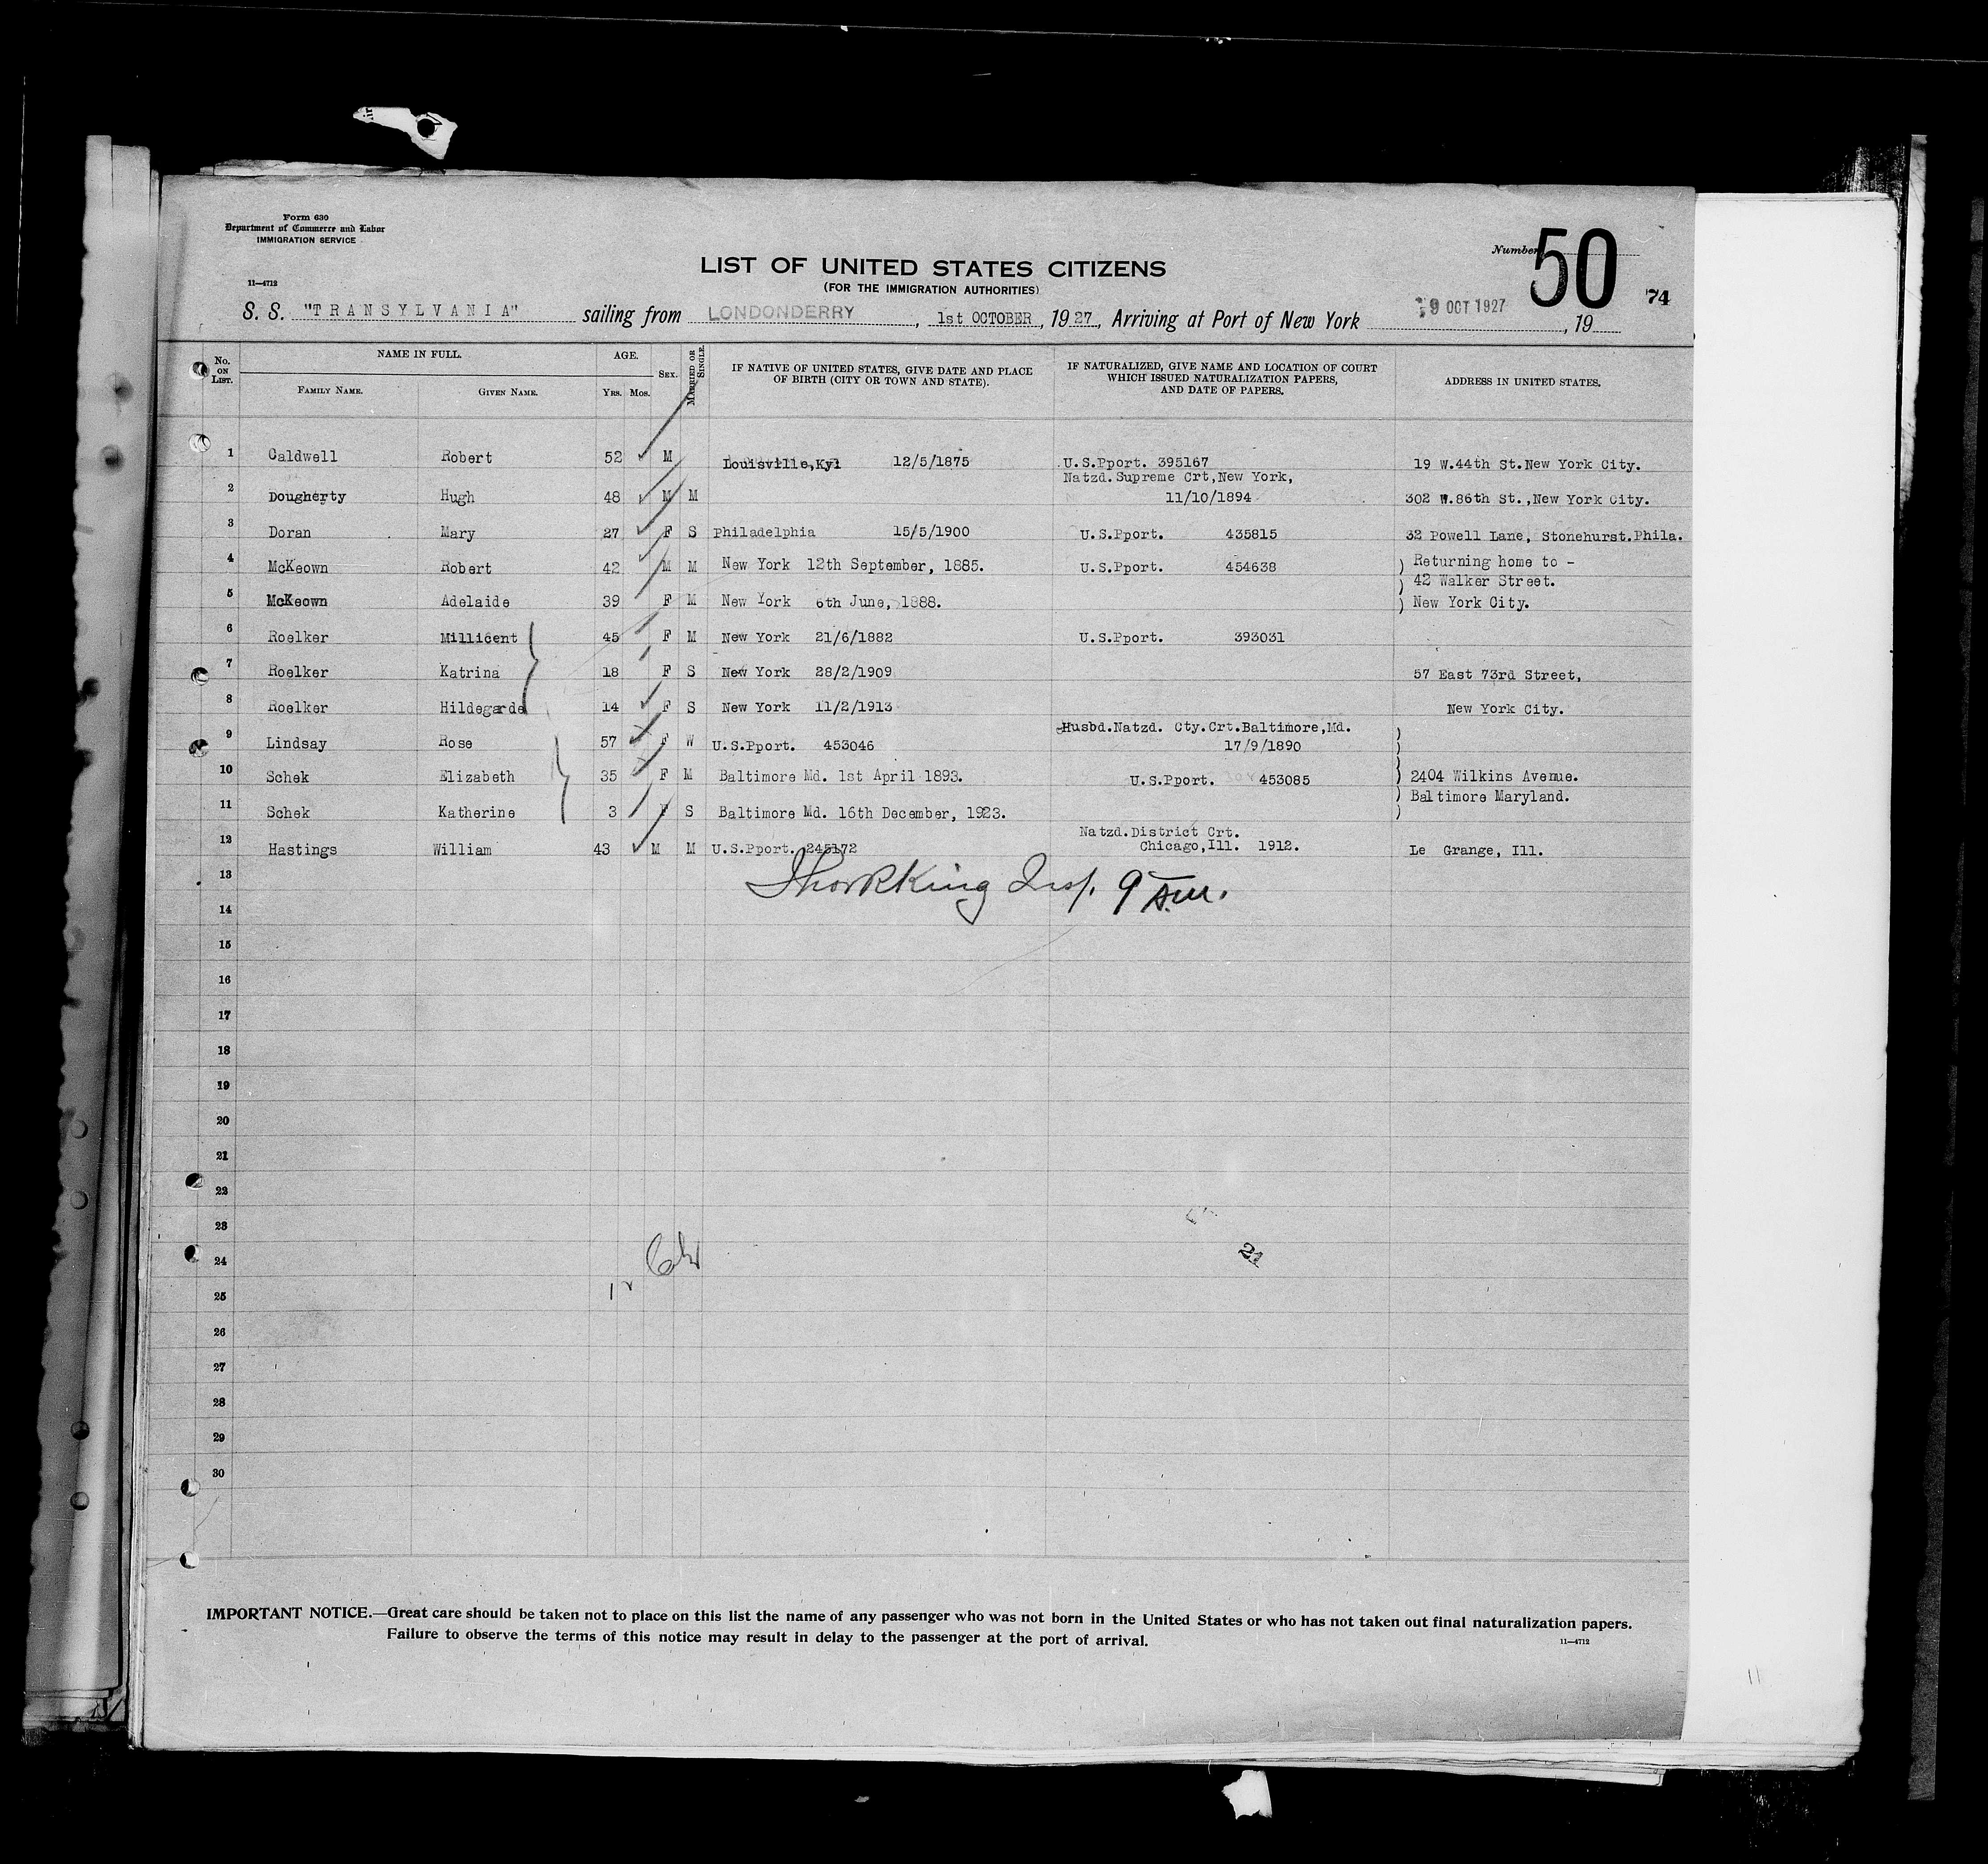 Form 630
Department of Commerce and Labor
IMMIGRATION SERVICE
11—4712
Number 50
74
LIST OF UNITED STATES CITIZENS
(FOR THE IMMIGRATION AUTHORITIES)
S. S. "TRANSYLVANIA" sailing from LONDONDERRY, 1st OCTOBER, 1927, Arriving at Port of New York 9 OCT 1927, 19
No. ON LIST. NAME IN FULL. FAMILY NAME. GIVEN NAME. AGE. YRS. MOS. SEX. MARRIED OR SINGLE. IF NATIVE OF UNITED STATES, GIVE DATE AND PLACE OF BIRTH (CITY OR TOWN AND STATE). IF NATURALIZED, GIVE NAME AND LOCATION OF COURT WHICH ISSUED NATURALIZATION PAPERS, AND DATE OF PAPERS. ADDRESS IN UNITED STATES.
1 Caldwell Robert 52 M Louisville,Kyl 12/5/1875 U.S.Pport. 395167 19 W.44th St.New York City.
Natzd.Supreme Crt,New York,
2 Dougherty Hugh 48 M M 11/10/1894 302 W.86th St.,New York City.
3 Doran Mary 27 F S Philadelphia 15/5/1900 U.S.Pport. 435815 32 Powell Lane, Stonehurst.Phila.
4 McKeown Robert 42 M M New York 12th September, 1885. U.S.Pport. 454638 ) Returning home to -
) 42 Walker Street.
5 McKeown Adelaide 39 F M New York 6th June, 1888. ) New York City.
6 Roelker Millicent 45 F M New York 21/6/1882 U.S.Pport. 393031
7 Roelker Katrina 18 F S New York 28/2/1909 57 East 73rd Street,
8 Roelker Hildegarde 14 F S New York 11/2/1913 New York City.
Husbd.Natzd. Cty.Crt.Baltimore,Md.
9 Lindsay Rose 57 F W U.S.Pport. 453046 17/9/1890
10 Schek Elizabeth 35 F M Baltimore Md. 1st April 1893. U.S.Pport. 453085 2404 Wilkins Avenue.
Baltimore Maryland.
11 Schek Katherine 3 F S Baltimore Md. 16th December, 1923.
Natzd.District Crt.
12 Hastings William 43 M M U.S.Pport. 245172 Chicago,Ill. 1912. Le Grange, Ill.
13 Insp. 9 am.
14
15
16
17
18
19
20
21
22
23
24
25
26
27
28
29
30
IMPORTANT NOTICE.—Great care should be taken not to place on this list the name of any passenger who was not born in the United States or who has not taken out final naturalization papers.
Failure to observe the terms of this notice may result in delay to the passenger at the port of arrival.
11—4712